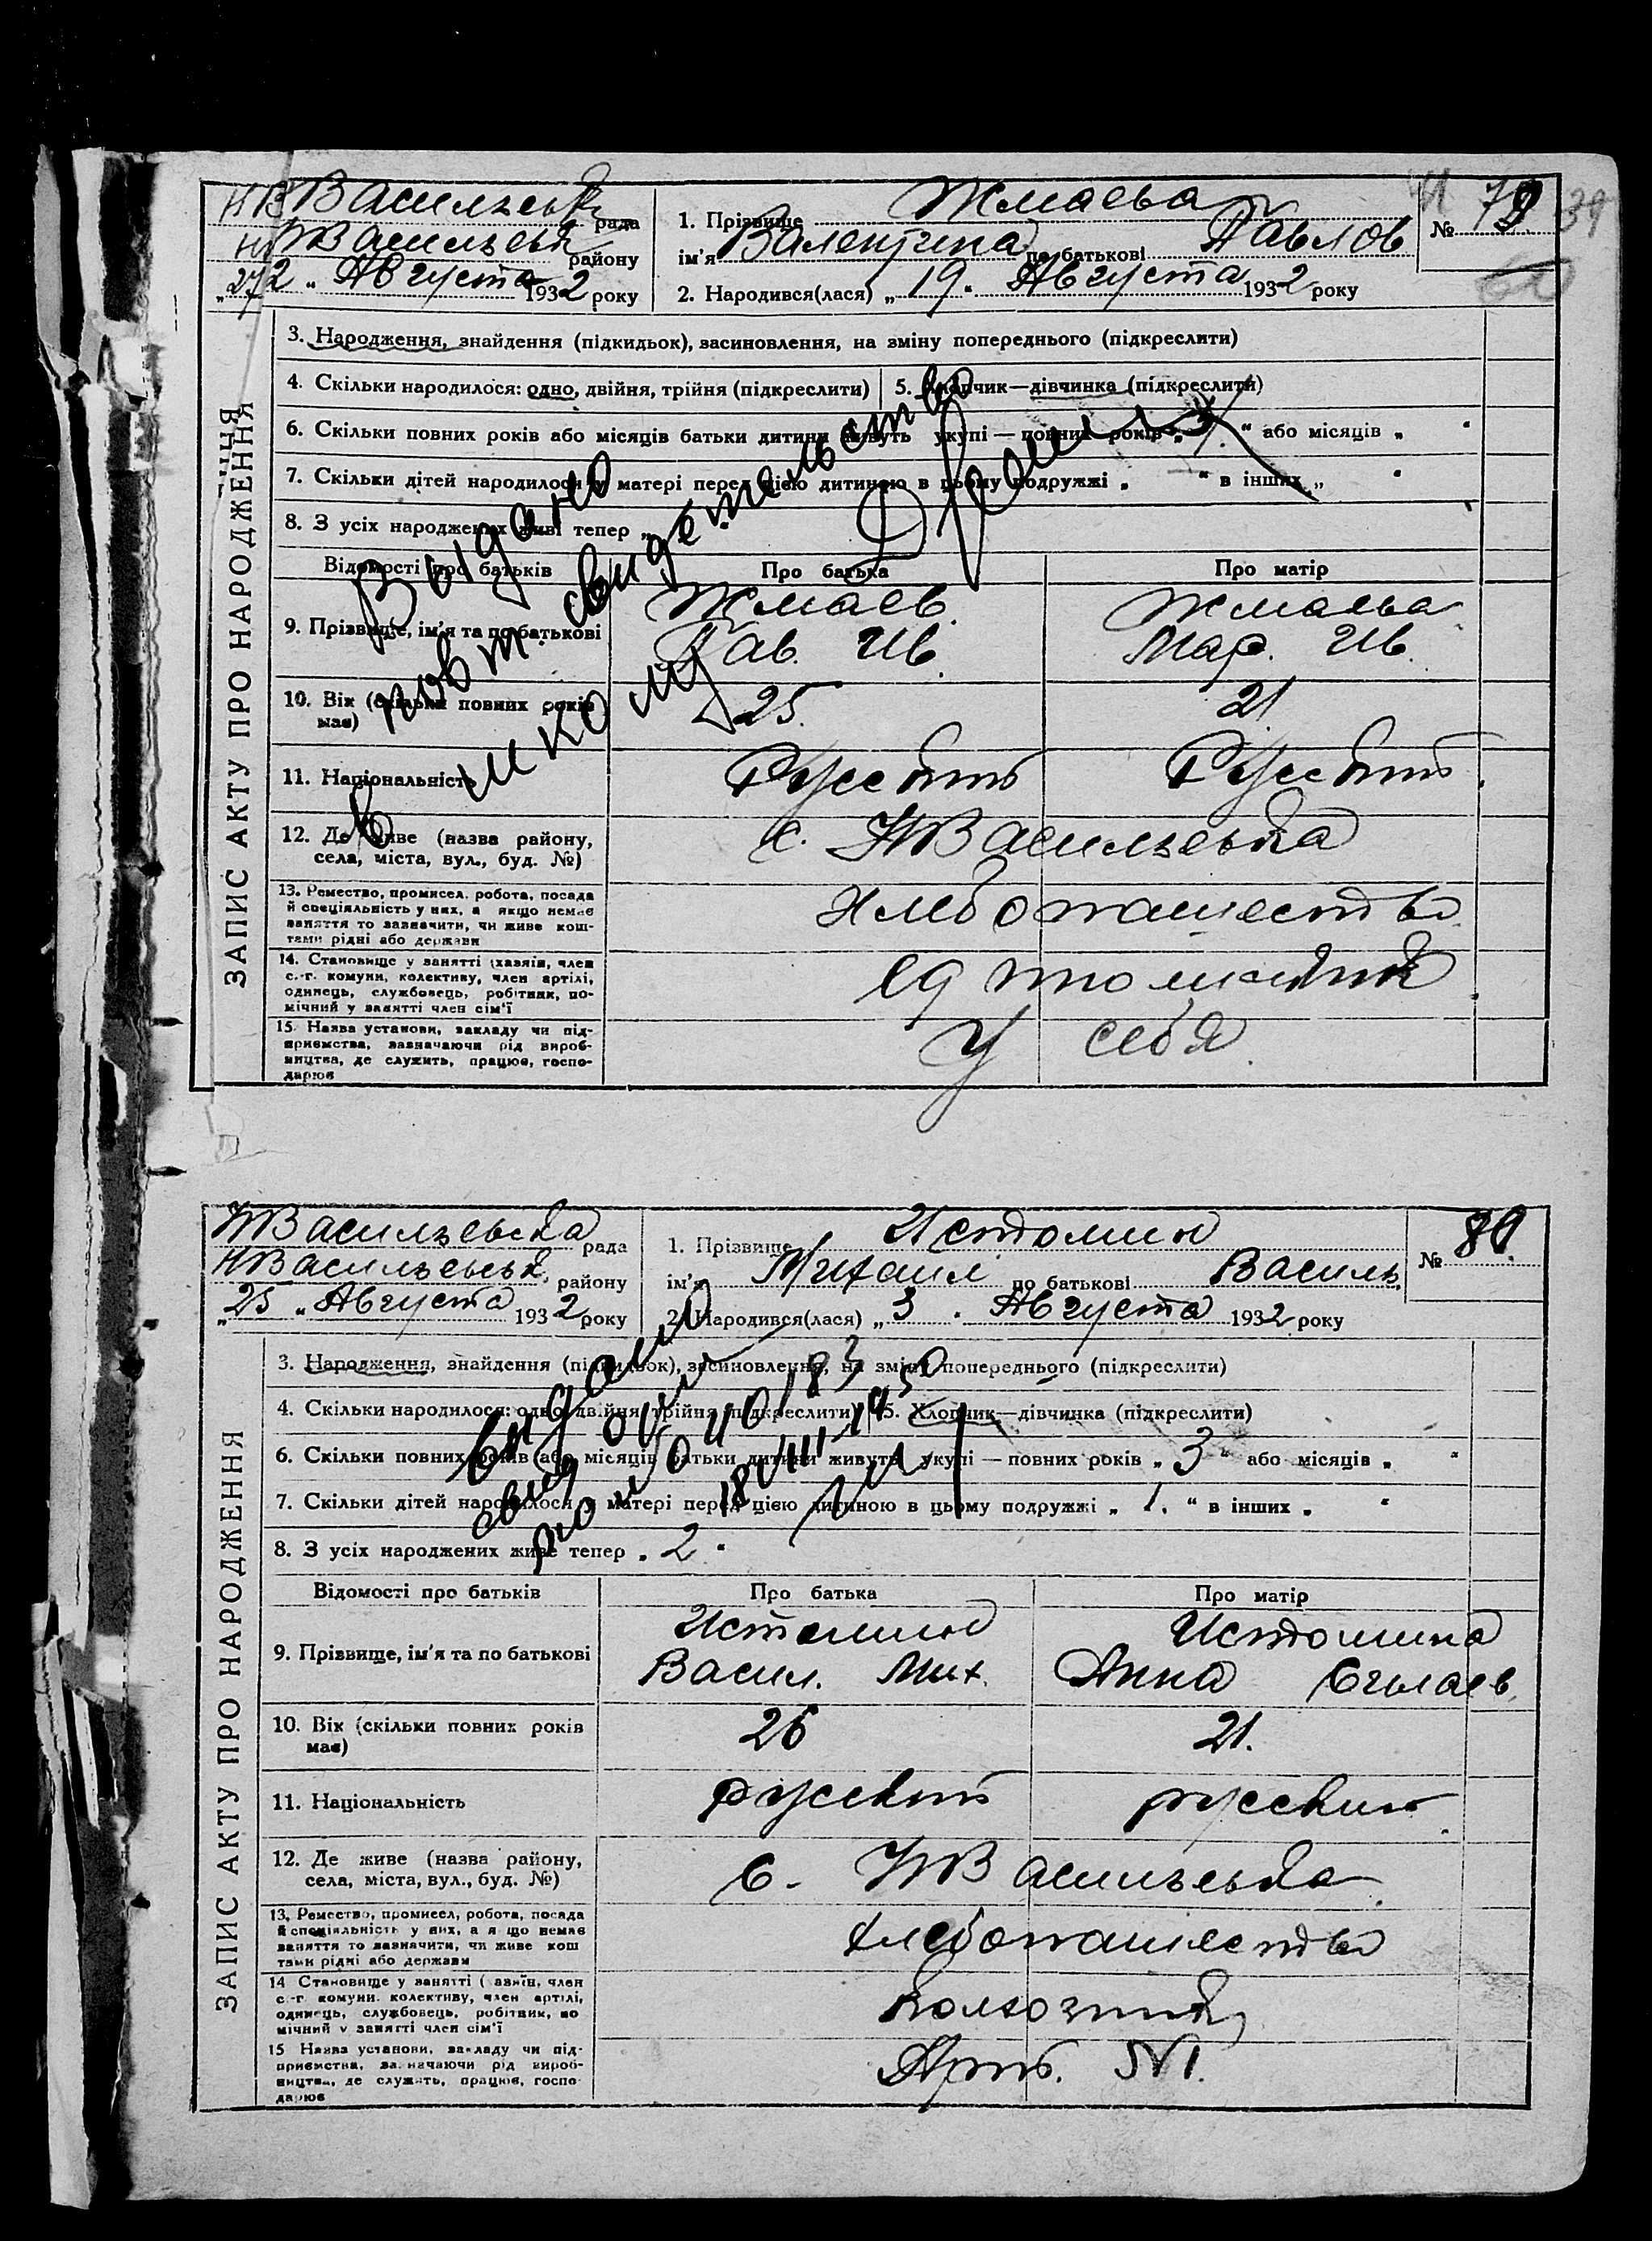 НВасильевк рада
НВасильевк району
„ 22 " Августа 1932 року
1. Прізвище Жмаева
ім'я Валентина по батькові Павлов
2. Народився(лася) „ 19 " Августа 1932 року
№ 79
39
ЗАПИС АКТУ ПРО НАРОДЖЕННЯ
3. Народження, знайдення (підкидьок), засиновлення, на зміну попереднього (підкреслити)
4. Скільки народилося: одно, двійня, трійня (підкреслити) 5. Хлопчик—дівчинка (підкреслити)
6. Скільки повних років або місяців батьки дитини живуть укупі — повних років „ " або місяців „ "
7. Скільки дітей народилося у матері перед цією дитиною в цьому подружжі „ " в інших „ "
8. З усіх народжених живі тепер „
Выдано
повт. свидетельство
в школу
Відомості про батьків Про батька Про матір
9. Прізвище, ім'я та по батькові Жмаев Жмаева
Пав. Ив. Мар. Ив.
10. Вік (скільки повних років має) 25. 21
11. Національність Русский Русский
12. Де живе (назва району, села, міста, вул., буд. №) с. НВасильевка
13. Ремество, промисел, робота, посада й спеціяльність у них, а якщо немає заняття то зазначити, чи живе коштами рідні або держави Хлебопашество
14. Становище у занятті (хазяїн, член с.-г. комуни, колективу, член артілі, одинець, службовець, робітник, помічний у занятті член сім'ї едтноличник
15. Назва установи, закладу чи підприємства, зазначаючи рід виробництва, де служить, працює, господарює У себя
НВасильевка рада
НВасильевк. району
„ 25 " Августа 1932 року
1. Прізвище Истомин
ім'я Михаил по батькові Василь.
2. Народився(лася) „ 3 " Августа 1932 року
№ 80.
ЗАПИС АКТУ ПРО НАРОДЖЕННЯ
3. Народження, знайдення (підкидьок), засиновлення, на зміну попереднього (підкреслити)
4. Скільки народилося: одно, двійня, трійня (підкреслити) 5. Хлопчик—дівчинка (підкреслити)
6. Скільки повних років або місяців батьки дитини живуть укупі — повних років „ 3 " або місяців „ "
7. Скільки дітей народилося у матері перед цією дитиною в цьому подружжі „ 1. " в інших „ "
8. З усіх народжених живе тепер „ 2 "
18/VIII 1950
Відомості про батьків Про батька Про матір
9. Прізвище, ім'я та по батькові Истомин Истомина
Васил. Мих. Анна
10. Вік (скільки повних років має) 26 21.
11. Національність русский русский
12. Де живе (назва району, села, міста, вул., буд. №) с. НВасильевка
13. Ремество, промисел, робота, посада й спеціяльність у них, а якщо немає заняття то зазначити, чи живе коштами рідні або держави хлебопашество
14 Становище у занятті (хазяїн, член с.-г комуни, колективу, член артілі, одинець, службовець, робітник, помічний у занятті член сім'ї колхозник
15 Назва установи, закладу чи підприємства, зазначаючи рід виробництва, де служить, працює, господарює Арт. №1.